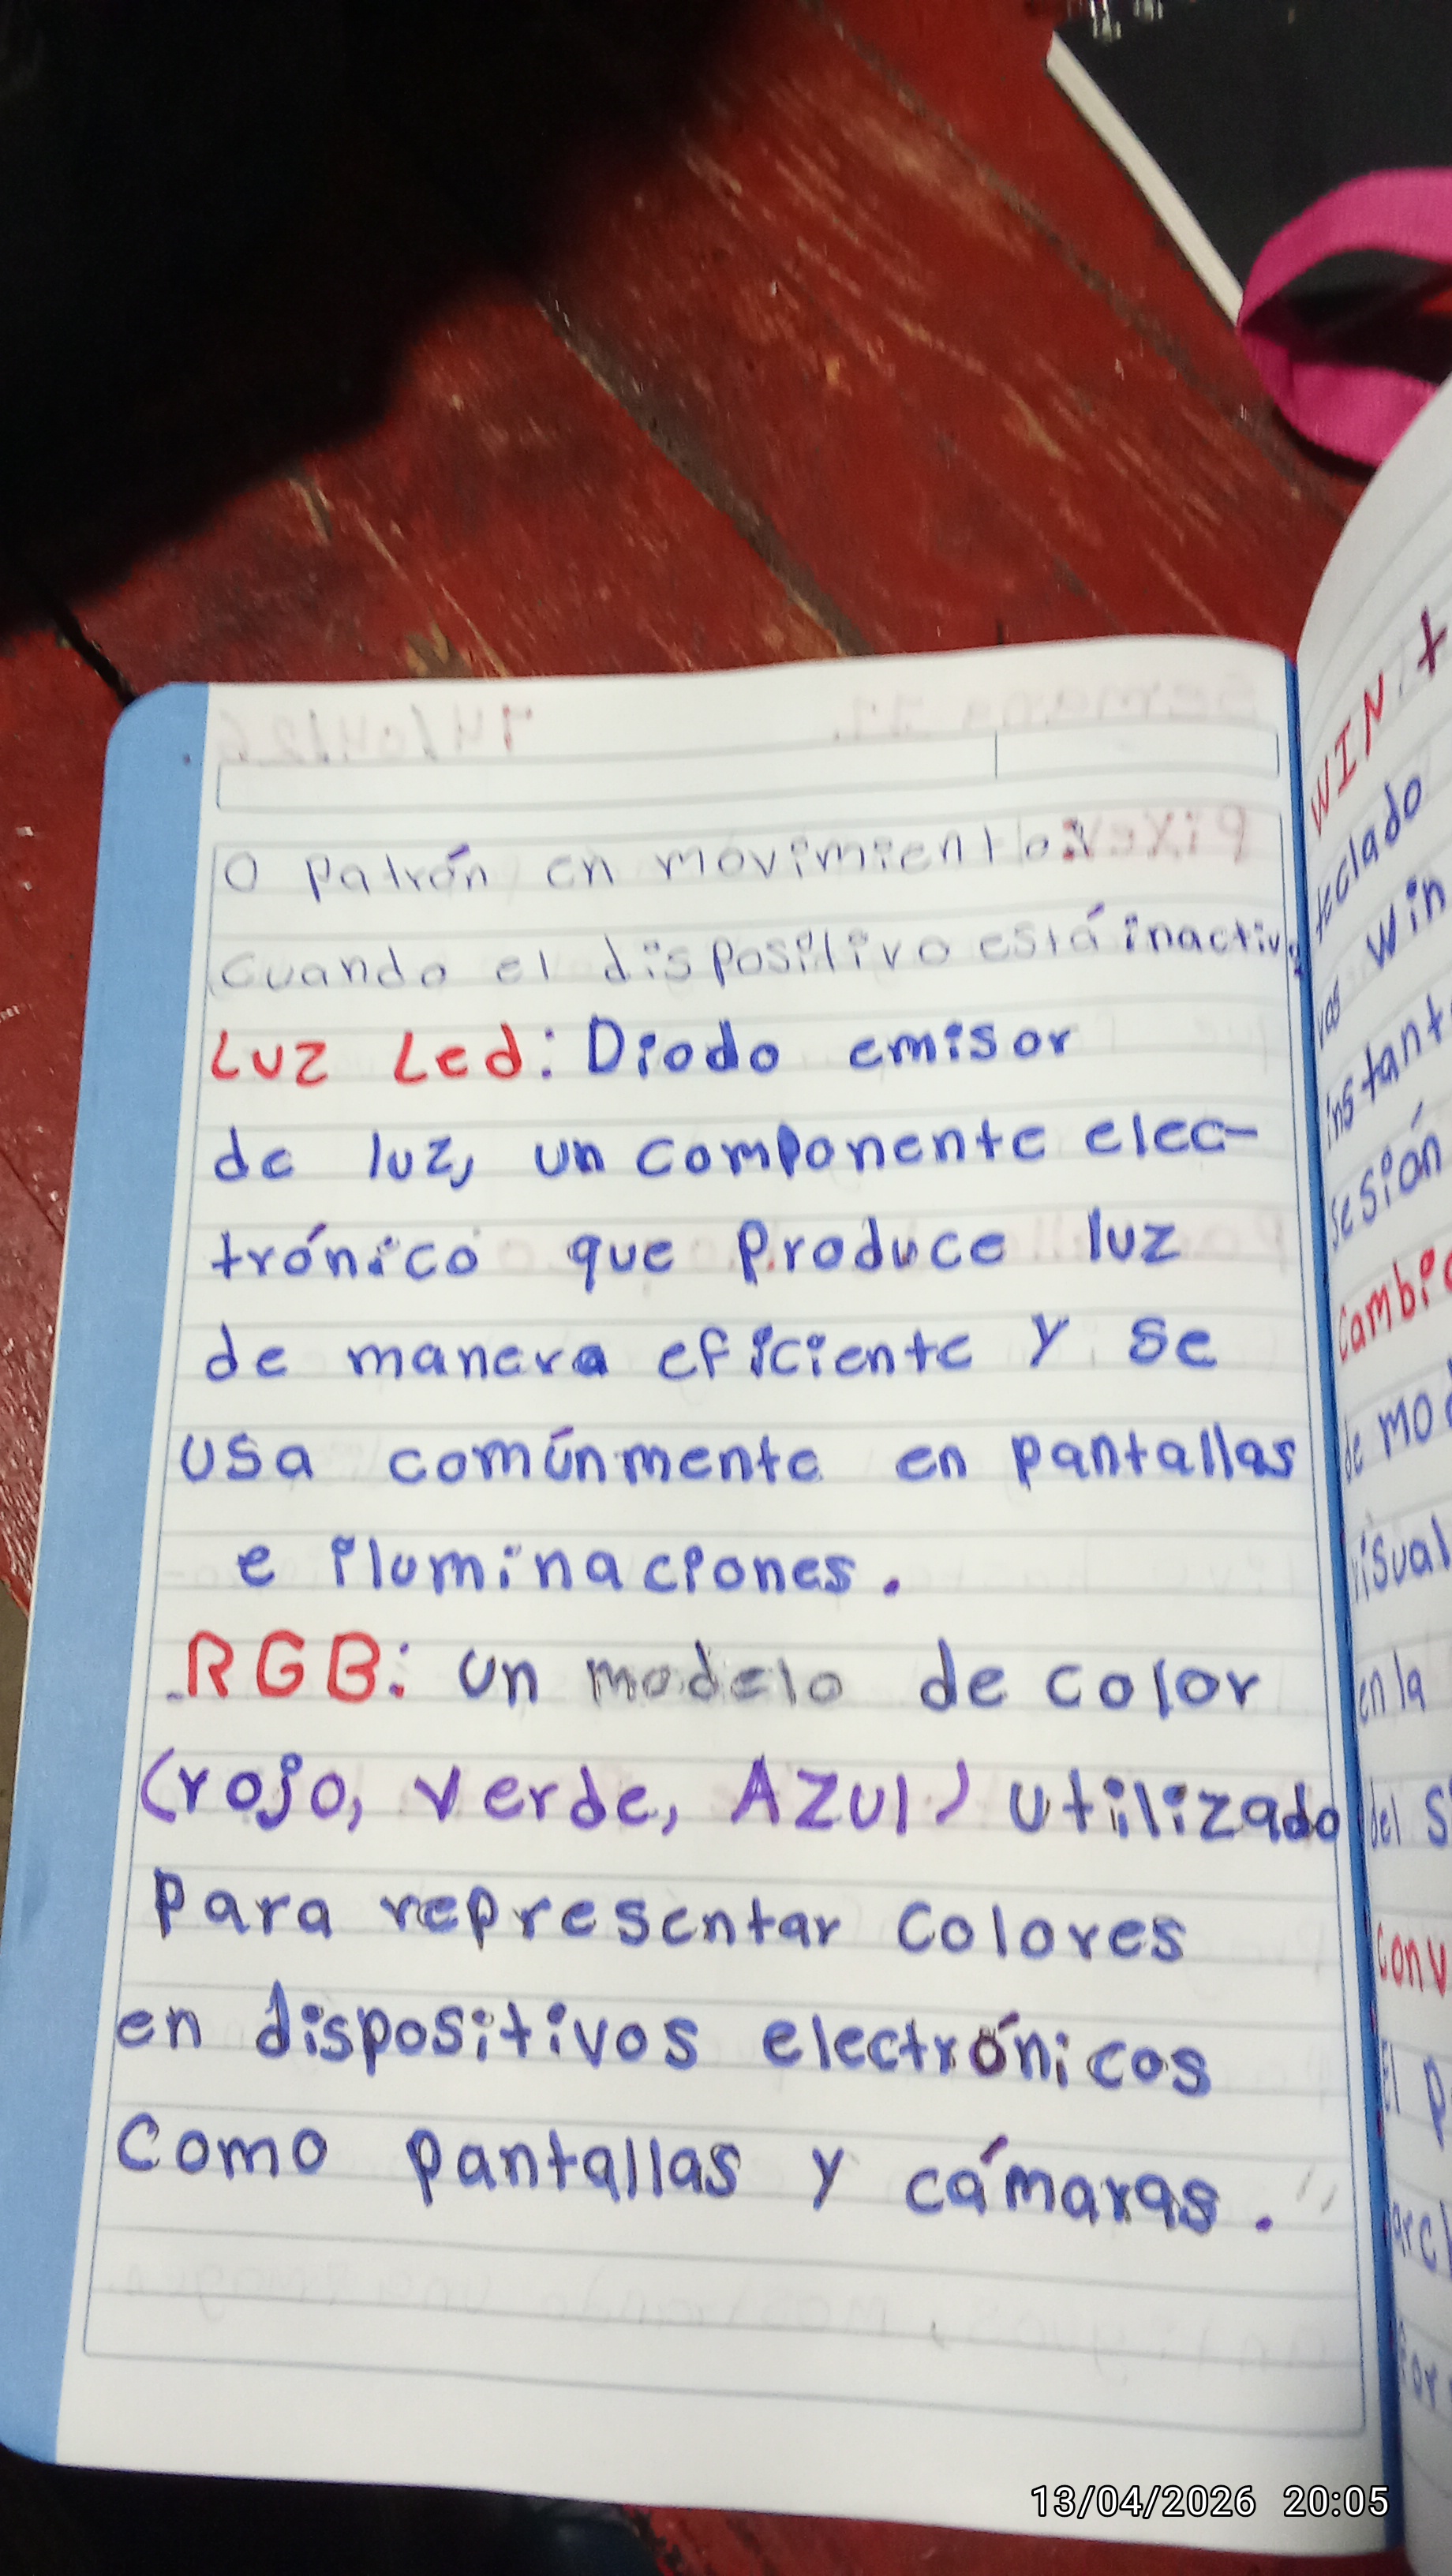 O Patrón en movimiento
cuando el dispositivo está inactivo
Luz Led: Diodo emisor
de luz, un componente elec-
trónico que produce luz
de manera eficiente y se
usa comúnmente en pantallas
e iluminaciones.
RGB: un modelo de color
(rojo, verde, AZUL) utilizado
Para representar colores
en dispositivos electrónicos
como pantallas y cámaras.
WIN +
teclado
Win
instant
sesión
Cambi
de mod
visual
en la
del S
conv
El P
arch
for
13/04/2026 20:05